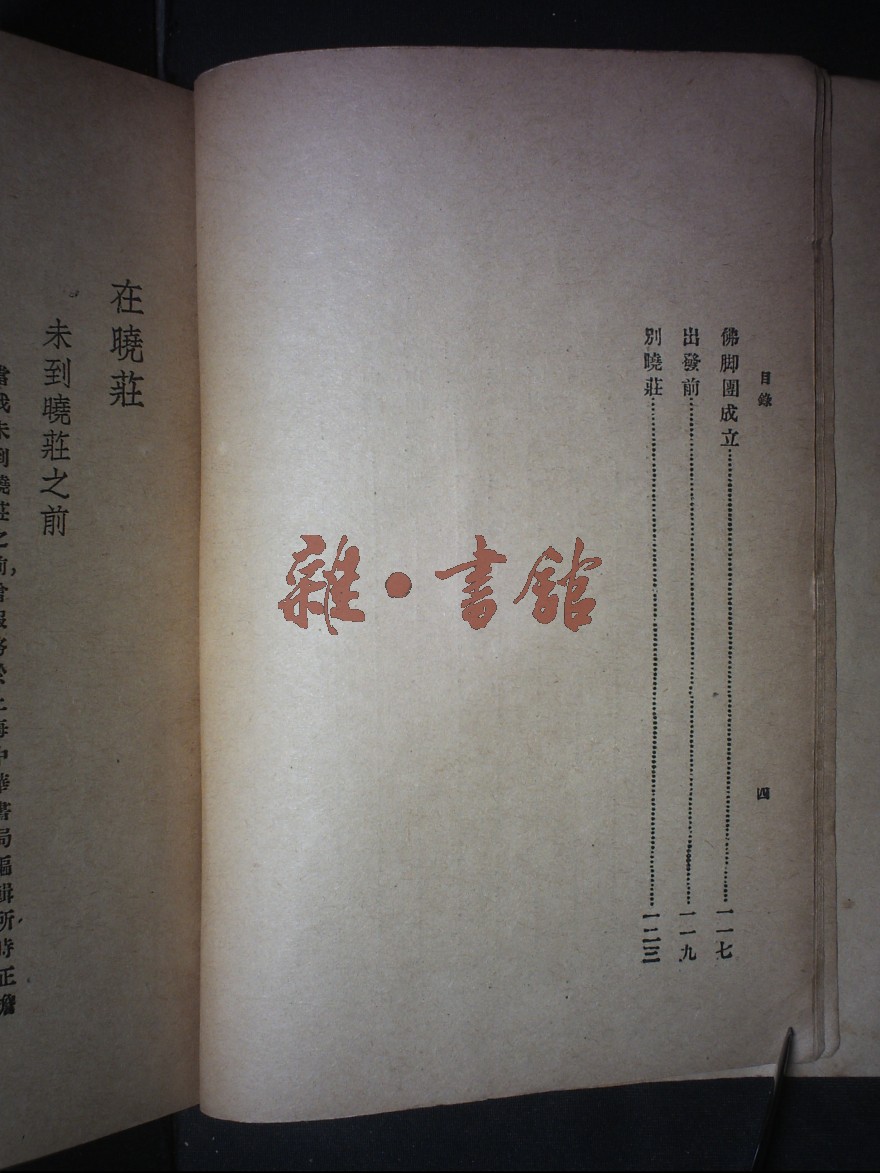 目錄
四
佛脚團成立………一一七
出發前………一一九
別曉莊………一二三
雜·書館
在曉莊
未到曉莊之前
當我未到曉莊之前，曾服務於上海中華書局編輯所時正擔